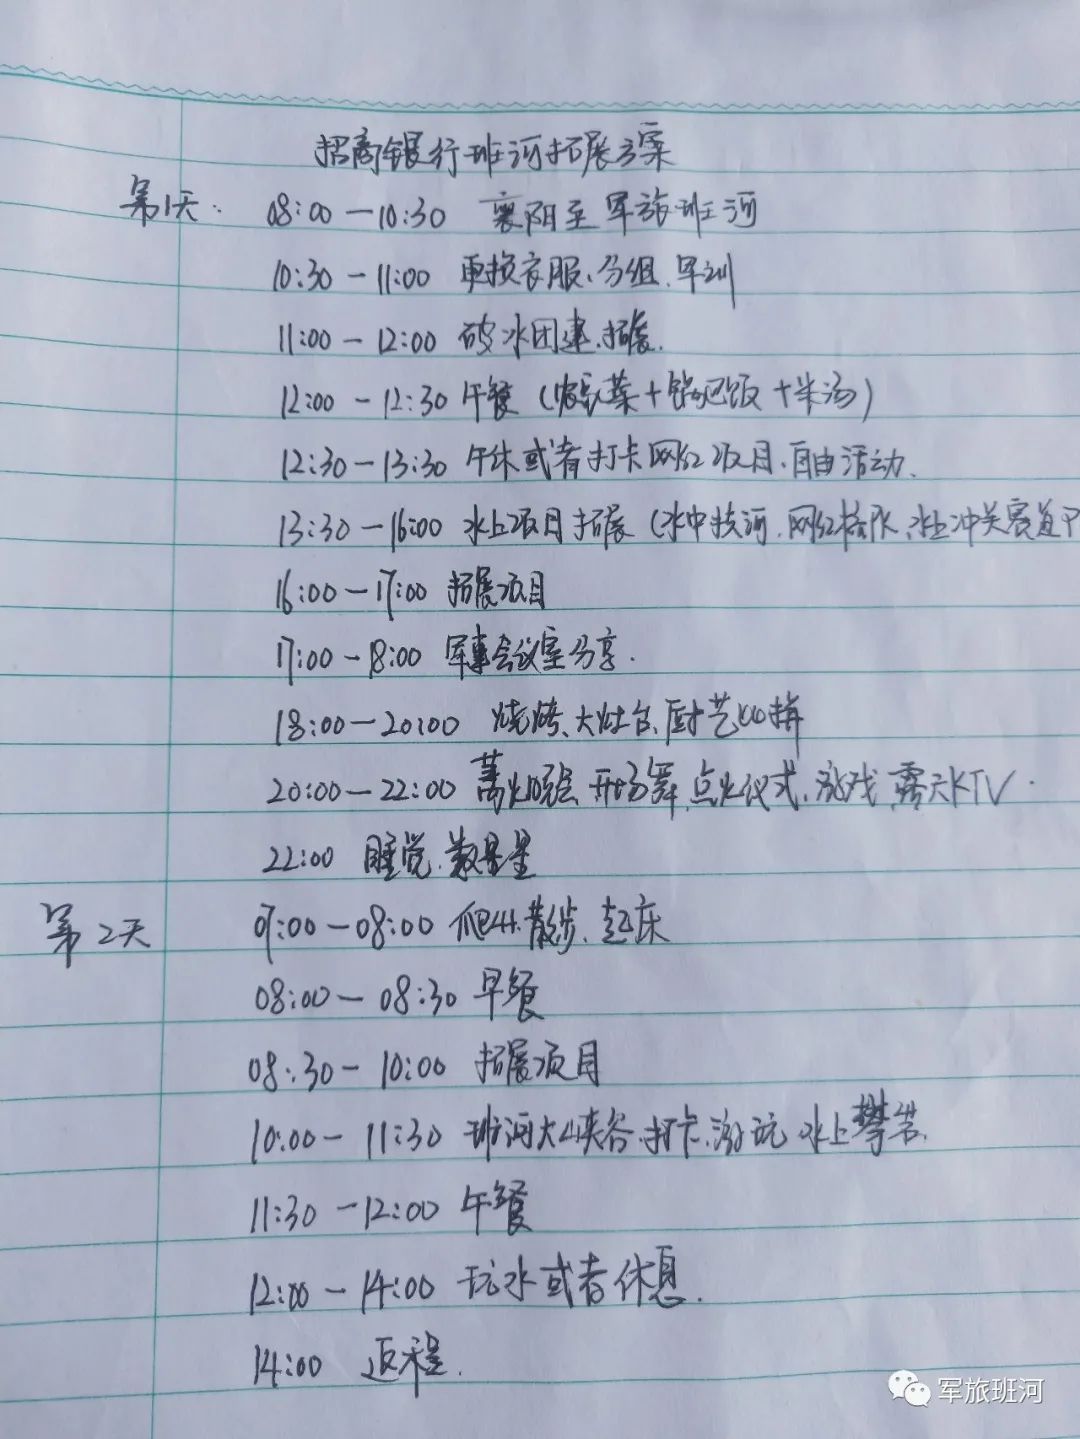 招商银行班河拓展方案
第1天: 08:00—10:30 襄阳至军旅班河
10:30—11:00 更换衣服、分组、军训
11:00—12:00 破冰团建、拓展.
12:00—12:30 午餐(农家菜+锅巴饭+米汤)
12:30—13:30 午休或者打卡网红项目、自由活动.
13:30—16:00 水上项目拓展(水中拔河、网红桥、水上冲关赛道
16:00—17:00 拓展项目
17:00—18:00 军事会议室分享.
18:00—20:00 烧烤、大灶台、厨艺比拼
20:00—22:00 篝火晚会 开场舞、点火仪式、游戏、露天KTV.
22:00 睡觉、数星星
第2天 07:00—08:00 爬山、散步、起床
08:00—08:30 早餐
08:30—10:00 拓展项目
10:00—11:30 班河大峡谷、打卡、游玩 水上攀岩.
11:30—12:00 午餐
12:00—14:00 玩水或者休息.
14:00 返程.
军旅班河